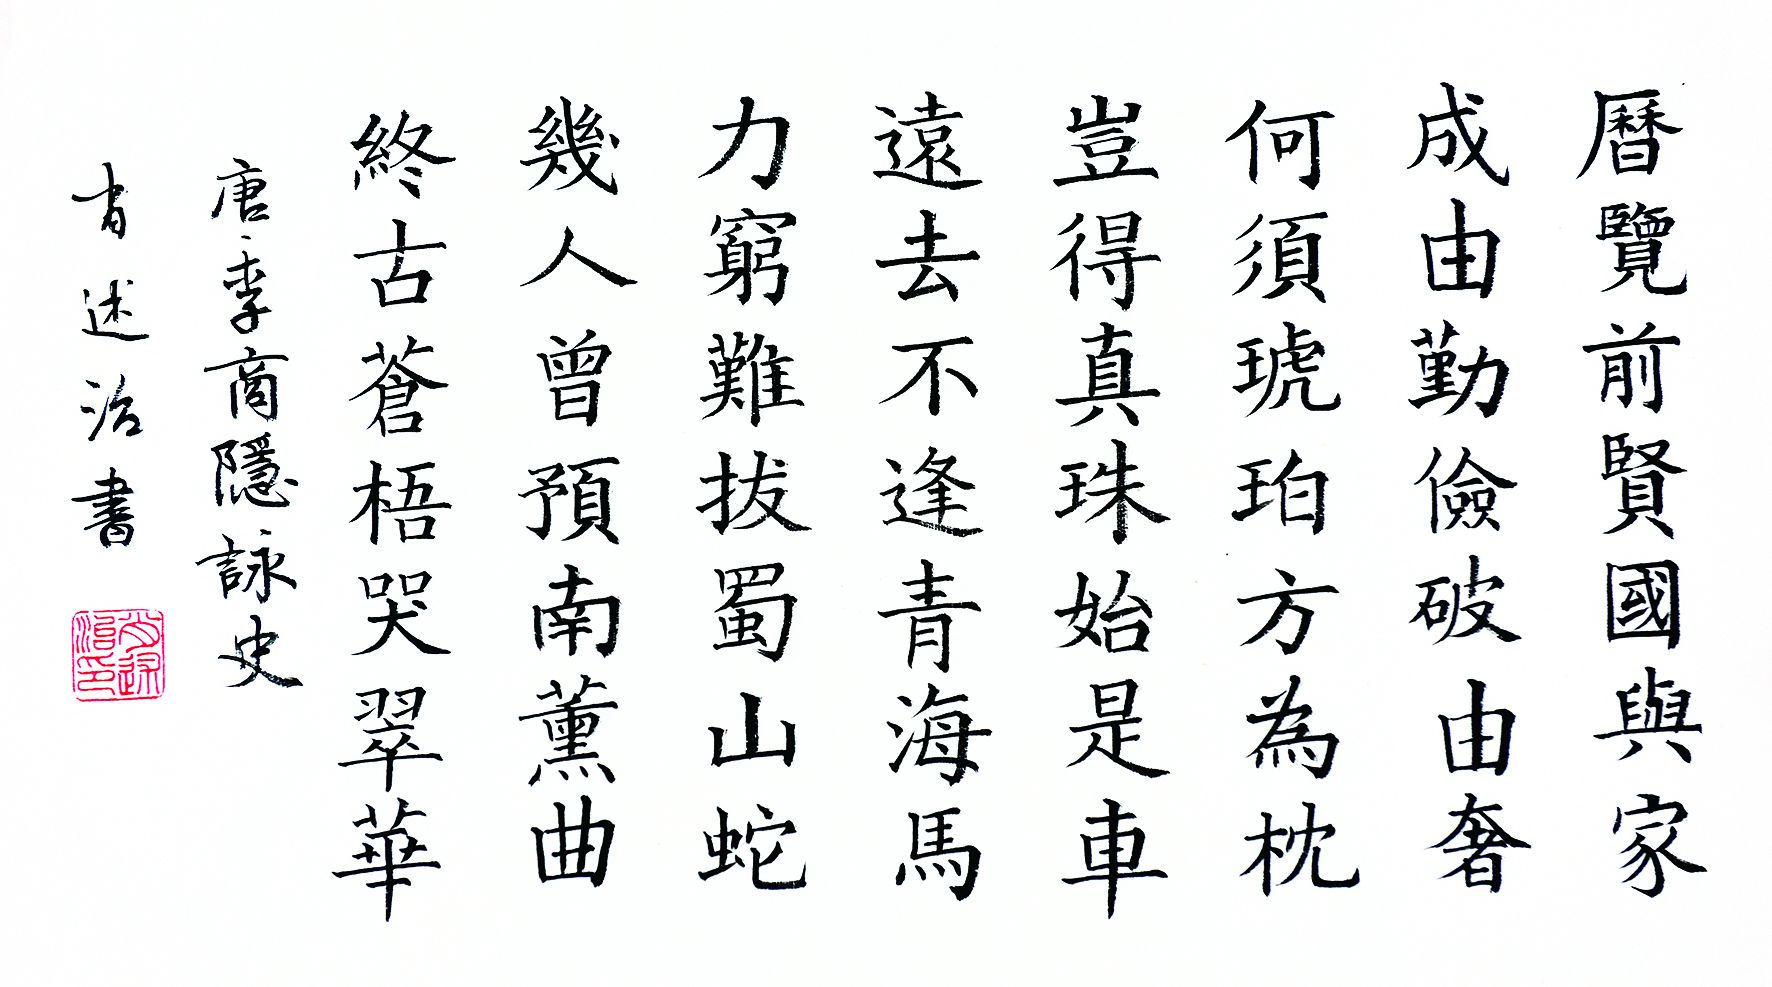 曆覽前賢國與家
成由勤儉破由奢
何須琥珀方為枕
豈得真珠始是車
遠去不逢青海馬
力窮難拔蜀山蛇
幾人曾預南薰曲
終古蒼梧哭翠華
唐·李商隱詠史
肖述治書
肖述治印